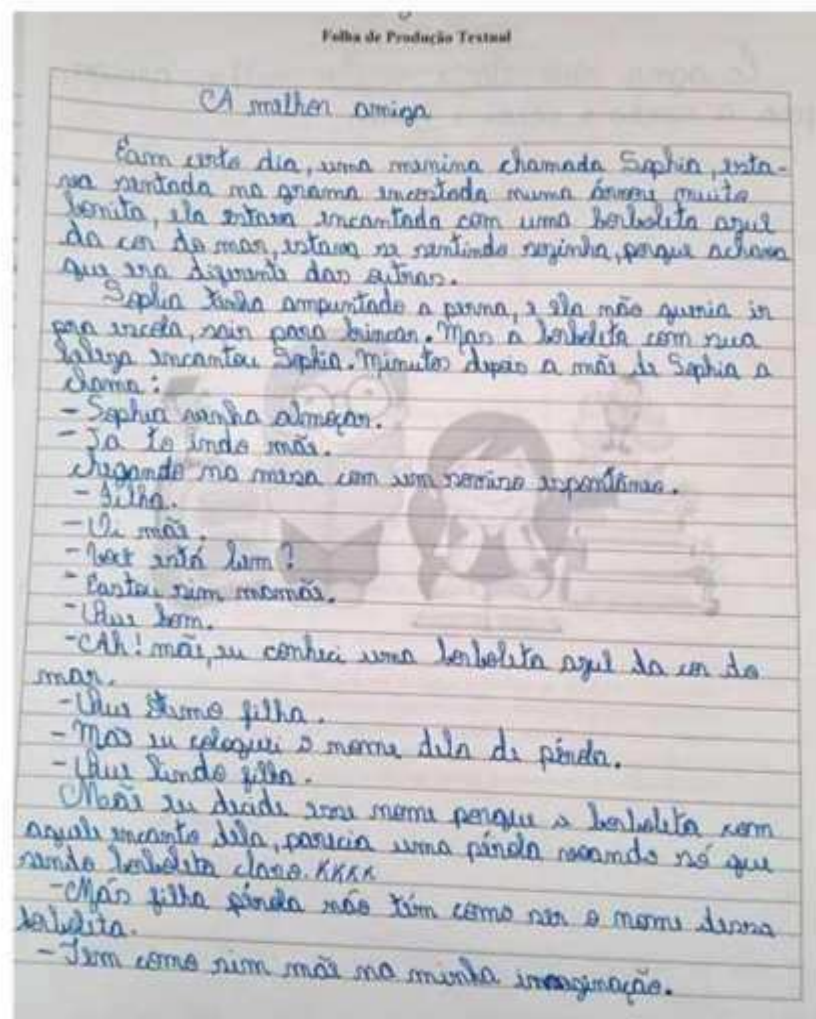 Folha de Produção Textual
A melhor amiga
Eam certo dia, uma menina chamada Sophia, esta-
va sentada na grama encostada numa árvore muito
bonita, ela estava encantada com uma borboleta azul
da cor do mar, estava se sentindo sozinha, porque achava
que era diferente das outras.
Sophia tinha ampuntado a perna, e ela não queria ir
pra escola, sair para brincar. Mas a borboleta com sua
beleza encantou Sophia. Minutos depois a mãe de Sophia a
chama:
- Sophia venha almoçar.
- Ja to indo mãe.
chegando na mesa com um sorriso espontâneo.
- Filha.
- Oi mãe.
- Você está bem?
- Estou sim mamãe.
- Que bom.
- Ah! mãe, eu conheci uma borboleta azul da cor do
mar.
- Que filha.
- Mas eu coloquei o nome dela de pérola.
- Que lindo filha.
Mãe eu decide esse nome porque a borboleta com
aquele encanto dela, parecia uma pérola voando só que
sendo borboleta claro. KKKK
- Mas filha pérola não tem como ser o nome dessa
borboleta.
- Tem como sim mãe na minha imaginação.